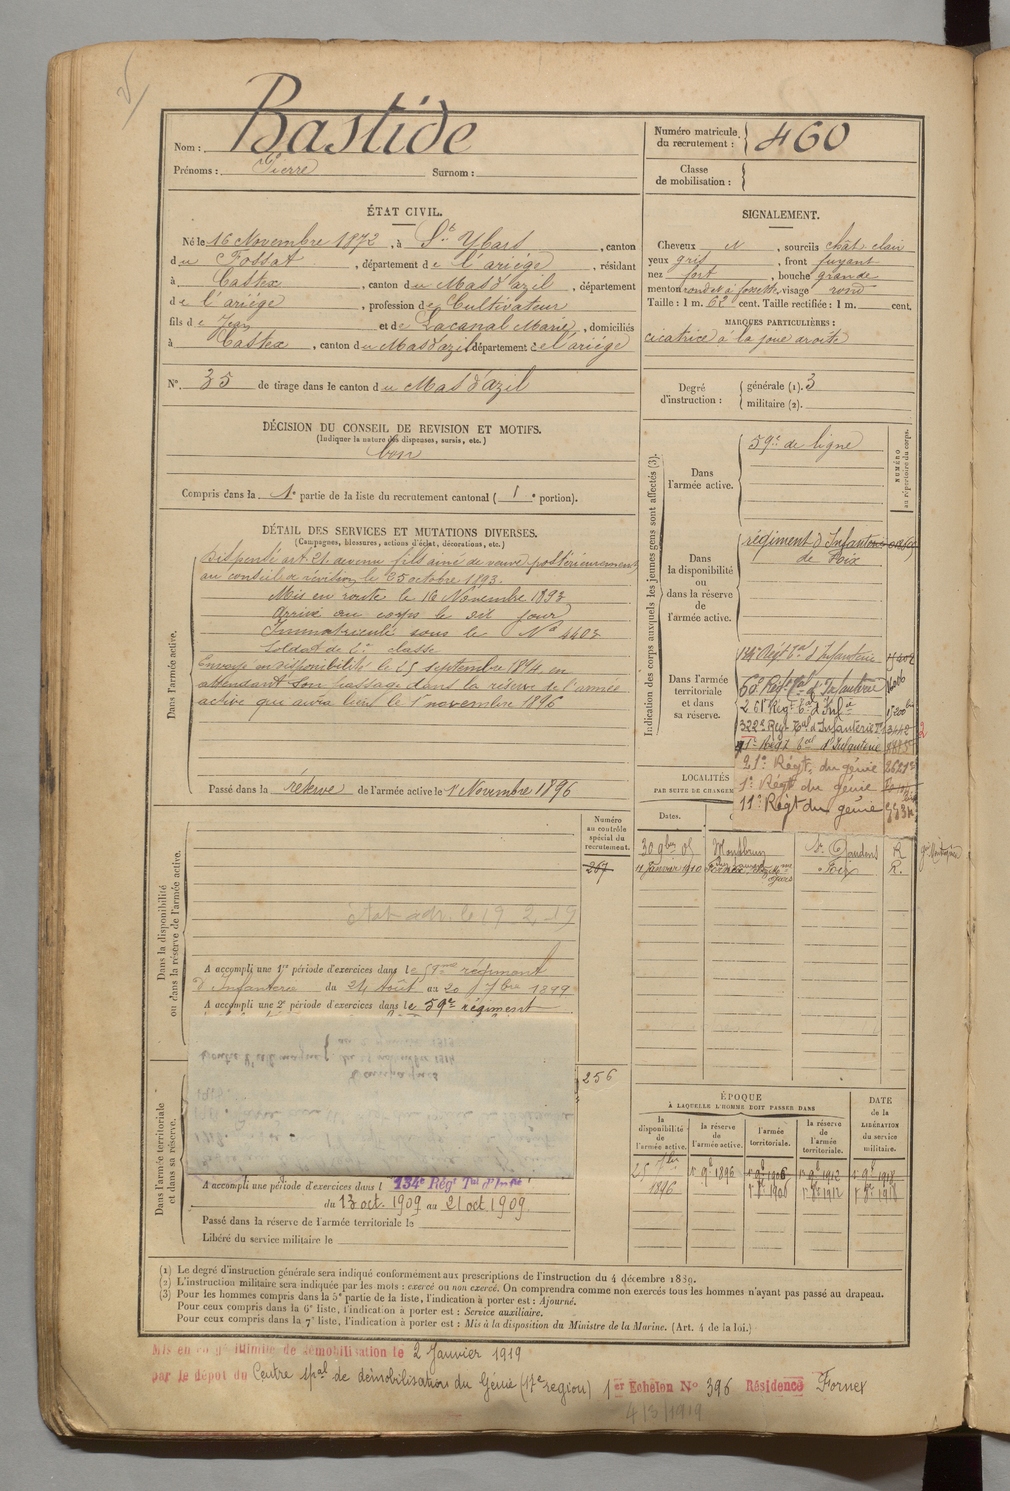 Nom : Bastide
Prénoms : Pierre Surnom :
Numéro matricule du recrutement : 460
Classe de mobilisation :
ÉTAT CIVIL.
Né le 16 Novembre 1872, à St Ybars, canton
du Fossat, département de l'ariége, résidant
à Castex, canton du Mas d'azil, département
de l'ariége, profession de Cultivateur
fils de Jean et de Lacanal Marie, domiciliés
à Castex, canton du Mas d'azil département de l'ariége
N° 35 de tirage dans le canton du Mas d'azil
DÉCISION DU CONSEIL DE REVISION ET MOTIFS.
(Indiquer la nature des dispenses, sursis, etc.)
bon
Compris dans la 1e partie de la liste du recrutement cantonal ( 1e portion).
SIGNALEMENT.
Cheveux N, sourcils chât clair
yeux gris, front fuyant
nez fort, bouche grande
menton rond et à fossette visage rond
Taille : 1 m. 62 cent. Taille rectifiée : 1 m. cent.
MARQUES PARTICULIÈRES :
cicatrice à la joue droite
Degré d'instruction : générale (1). 3
militaire (2).
DÉTAIL DES SERVICES ET MUTATIONS DIVERSES.
(Campagnes, blessures, actions d'éclat, décorations, etc.)
Dans l'armée active.
Dispensé art 21 devenu fils ainé de veuve postérieurement
au conseil de révision le 25 octobre 1893.
Mis en route le 16 Novembre 1893
Arrivé au corps le dit jour
Immatriculé sous le No 4403
Soldat de 2e classe
Envoyé en disponibilité le 25 septembre 1894, en
attendant son passage dans la réserve de l'armée
active qui aura lieu le 1 novembre 1896
Passé dans la réserve de l'armée active le 1 Novembre 1896
Indication des corps auxquels les jeunes gens sont affectés (3).
NUMÉRO au répertoire du corps.
Dans l'armée active.
59e de ligne
Dans la disponibilité ou dans la réserve de l'armée active.
régiment d'Infanterie
de Foix
Dans l'armée territoriale et dans sa réserve.
134e Régt Tal d'Infanterie
63e Régt Tal d'Infanterie
261e Régt Tal d'Infie
322e Régt Tal d'Infanterie
Régt Tal d'Infanterie
21e Régt. du génie
1e Régt du génie
11e Régt du génie
LOCALITÉS
PAR SUITE DE CHANGEM
Dates.
30 9bre 05 Montbrun St Gaudens R
11 Janvier 1910 Foix R.
Dans la disponibilité ou dans la réserve de l'armée active.
Numéro au contrôle spécial du recrutement.
267
19 2 19
A accompli une 1re période d'exercices dans le 59me régiment
d'Infanterie du 24 Août au 20 7bre 1899
A accompli une 2e période d'exercices dans le 59e régiment
Dans l'armée territoriale et dans sa réserve.
256
A accompli une période d'exercices dans l 134e Régt Tal d'Infie
du 13 oct. 1909 au 21 oct. 1909.
Passé dans la réserve de l'armée territoriale le
Libéré du service militaire le
ÉPOQUE
À LAQUELLE L'HOMME DOIT PASSER DANS
la disponibilité de l'armée active.
la réserve de l'armée active.
l'armée territoriale.
la réserve de l'armée territoriale.
DATE de la LIBÉRATION du service militaire.
25 7bre 1896
1e 9e 1896
1e 9e 1906
1e 9e 1912
1e 9e 1918
(1) Le degré d'instruction générale sera indiqué conformément aux prescriptions de l'instruction du 4 décembre 1889.
(2) L'instruction militaire sera indiquée par les mots : exercé ou non exercé. On comprendra comme non exercés tous les hommes n'ayant pas passé au drapeau.
(3) Pour les hommes compris dans la 5e partie de la liste, l'indication à porter est : Ajourné.
Pour ceux compris dans la 6e liste, l'indication à porter est : Service auxiliaire.
Pour ceux compris dans la 7e liste, l'indication à porter est : Mis à la disposition du Ministre de la Marine. (Art. 4 de la loi.)
Mis en congé illimité de démobilisation le 2 Janvier 1919
par le dépôt du Centre spal de démobilisation du Génie (17e region) 1er Echelon No 396 Résidence Fornex
4/3/1919